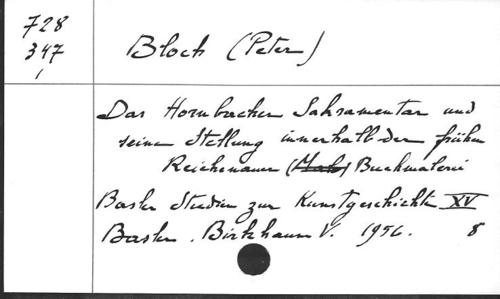 728
347
1
Bloch (Peter)
Das Hornbacher Sakramentar und
seine Stellung innerhalb der frühen
Reichenauer (Mal) Buchmalerei
Basler Studien zur Kunstgeschichte XV
Basler. Birkhauser V. 1956. 8